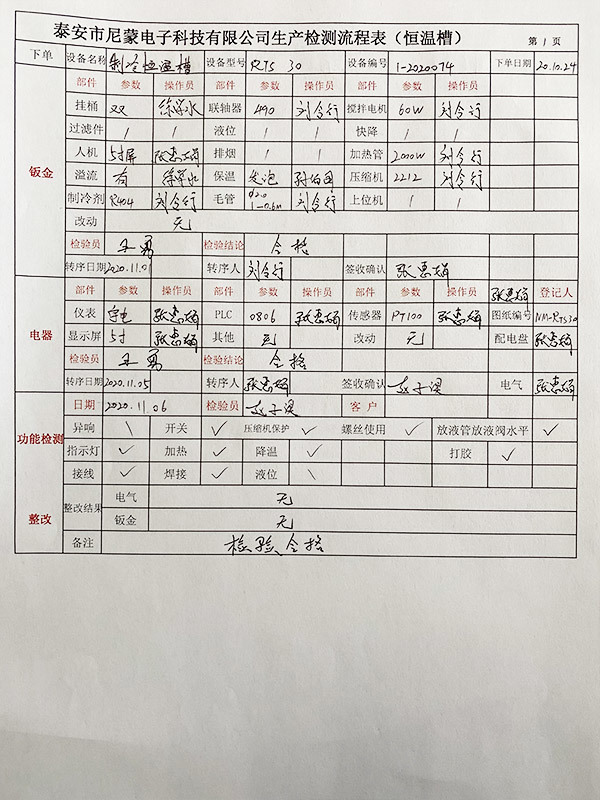 泰安市尼蒙电子科技有限公司生产检测流程表（恒温槽） 第 1 页
下单 设备名称 制冷恒温槽 设备型号 RTS 30 设备编号 1-2020074 下单日期 20.10.24
部件 参数 操作员 部件 参数 操作员 部件 参数 操作员
挂桶 双 联轴器 490 刘令行 搅拌电机 60W 刘令行
过滤件 / / 液位 / / 快降 / /
钣金 人机 5寸屏 张惠娟 排烟 / / 加热管 2000W 刘令行
溢流 有 保温 发泡 压缩机 2212 刘令行
制冷剂 R404 刘令行 毛管 刘令行 上位机 / /
改动 无
检验员 王勇 检验结论 合格
转序日期 2020.11.01 转序人 刘令行 签收确认 张惠娟
部件 参数 操作员 部件 参数 操作员 部件 参数 操作员 张惠娟 登记人
仪表 宇电 张惠娟 PLC 0806 张惠娟 传感器 PT100 张惠娟 图纸编号 NM-RTS30
电器 显示屏 5寸 张惠娟 其他 无 改动 无 配电盘 张惠娟
检验员 王勇 检验结论 合格
转序日期 2020.11.05 转序人 张惠娟 签收确认 电气 张惠娟
日期 2020.11.06 检验员 客户
功能检测 异响 \ 开关 ✓ 压缩机保护 ✓ 螺丝使用 ✓ 放液管放液阀水平 ✓
指示灯 ✓ 加热 ✓ 降温 ✓ 打胶 ✓
接线 ✓ 焊接 ✓ 液位 \
整改 整改结果 电气 无
钣金 无
备注 检验合格